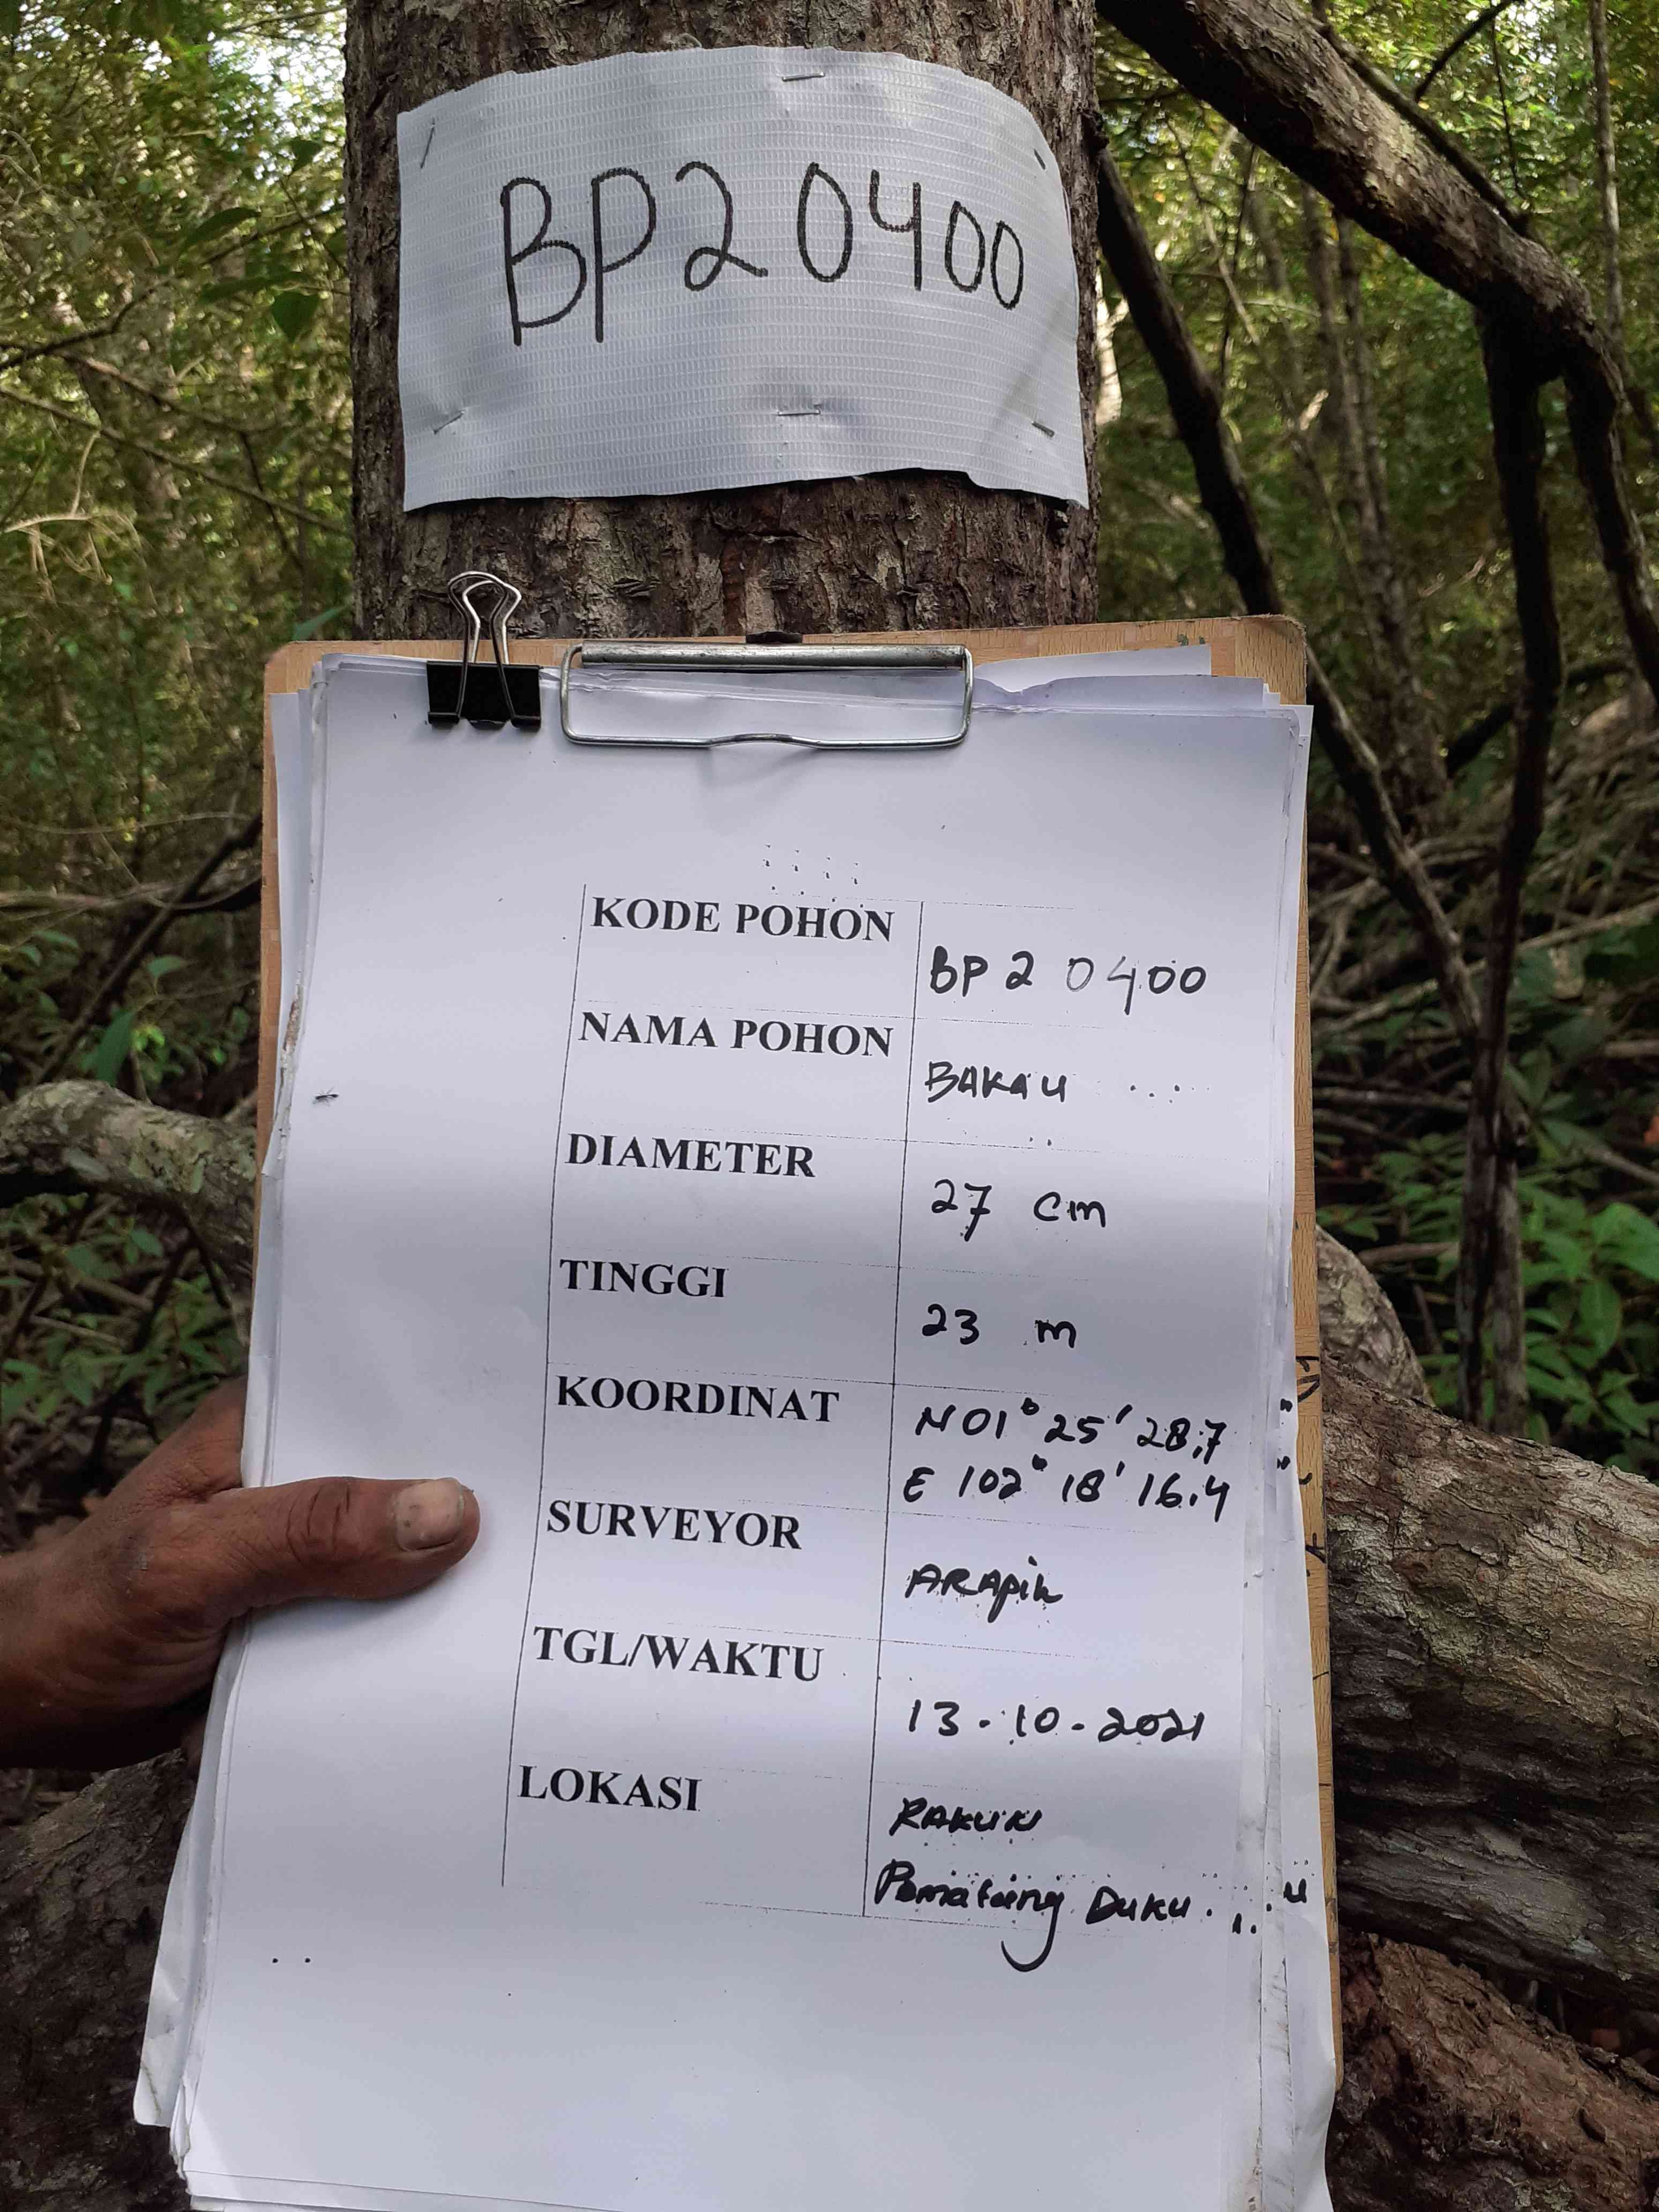 BP20400
KODE POHON
BP 2 0400
NAMA POHON
BAKAU
DIAMETER
27 cm
TINGGI
23 m
KOORDINAT
N 01° 25' 28,7
E 102° 18' 16.4
SURVEYOR
ARApik
TGL/WAKTU
13-10-2021
LOKASI
RAKUN
Pematang Duku